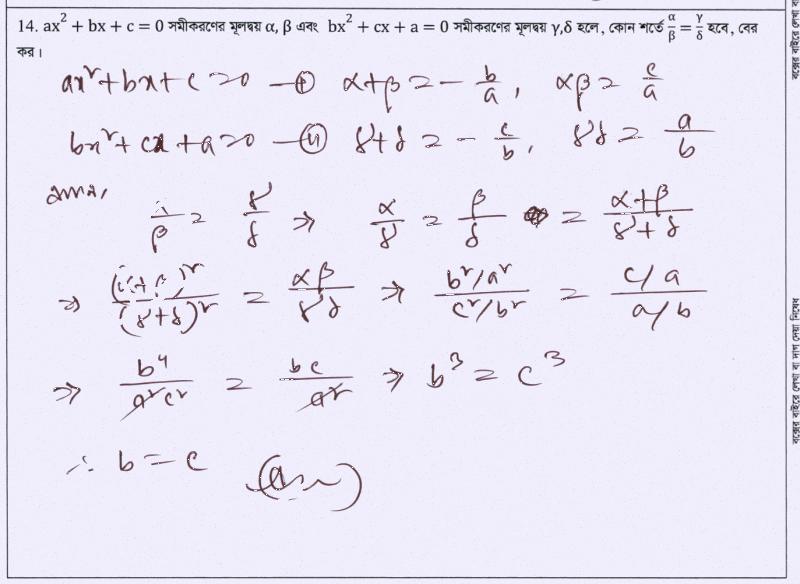 14. ax² + bx + c = 0 সমীকরণের মূলদ্বয় α, β এবং bx² + cx + a = 0 সমীকরণের মূলদ্বয় γ,δ হলে, কোন শর্তে α/β = γ/δ হবে, বের
কর।
ax² + bx + c = 0 —(i) α+β = - b/a, αβ = c/a
bx² + cx + a = 0 —(ii) γ+δ = - c/b, γδ = a/b
α/β = γ/δ ⇒ α/γ = β/δ = α+β/γ+δ
⇒ (α+β)²/(γ+δ)² = αβ/γδ ⇒ b²/a²/c²/b² = c/a/a/b
⇒ b⁴/a²c² = bc/a² ⇒ b³ = c³
∴ b = c (Ans)
বক্সের বাইরে লেখা বা দাগ দেয়া নিষেধ